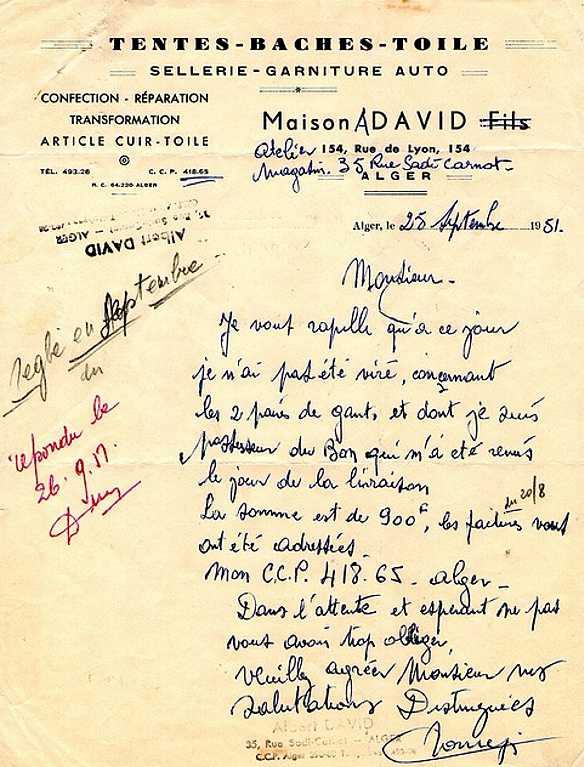 TENTES-BACHES-TOILE
SELLERIE-GARNITURE AUTO
CONFECTION - RÉPARATION
TRANSFORMATION
ARTICLE CUIR-TOILE
TÉL. 493.26 C. C. P. 418.65
R. C. 64.220 ALGER
Maison A DAVID Fils
Atelier 154, Rue de Lyon, 154
Magasin. 35 Rue Sadi Carnot-
ALGER
Albert DAVID
35, Rue Sadi-Carnot - ALGER
Alger, le 25 Septembre 1951.
Monsieur -
Je vous rapelle qu'à ce jour
je n'ai pas été viré, concernant
les 2 paires de gants, et dont je suis
possesseur du Bon qui m'a été remis
le jour de la livraison
La somme est de 900f, les factures du 20/8 vous
ont été adressées.
Mon C.C.P. 418.65 - alger -
Dans l'attente et esperant ne pas
vous avoir trop obliger,
veuillez agréer Monsieur mes
salutations Distinguées
Réglé en Septembre
répondu le
26.9.51.
Albert DAVID
35, Rue Sadi-Carnot - ALGER
C.C.P. Alger